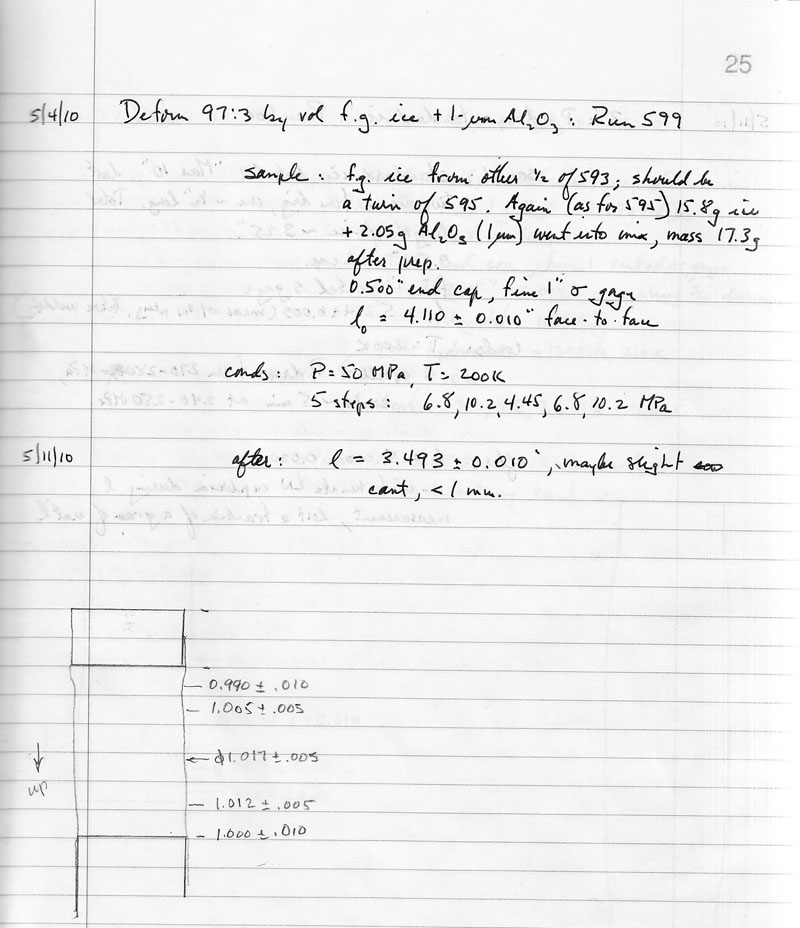 25
5/4/10 Deform 97:3 by vol f.g. ice + 1-µm Al2O3: Run 599
sample: f.g. ice from other 1/2 of 593; should be
a twin of 595. Again (as for 595) 15.8g ice
+ 2.05g Al2O3 (1 µm) went into mix, mass 17.3g
after prep.
0.500" end cap, fine 1" σ gage
l0 = 4.110 ± 0.010" face-to-face
conds: P=50 MPa, T=200K
5 steps: 6.8, 10.2, 4.45, 6.8, 10.2 MPa
5/11/10 after: l = 3.493 ± 0.010", maybe slight
cant, <1 mm.
0.990 ± .010
1.005 ± .005
1.017 ± .005
1.012 ± .005
1.000 ± .010
up